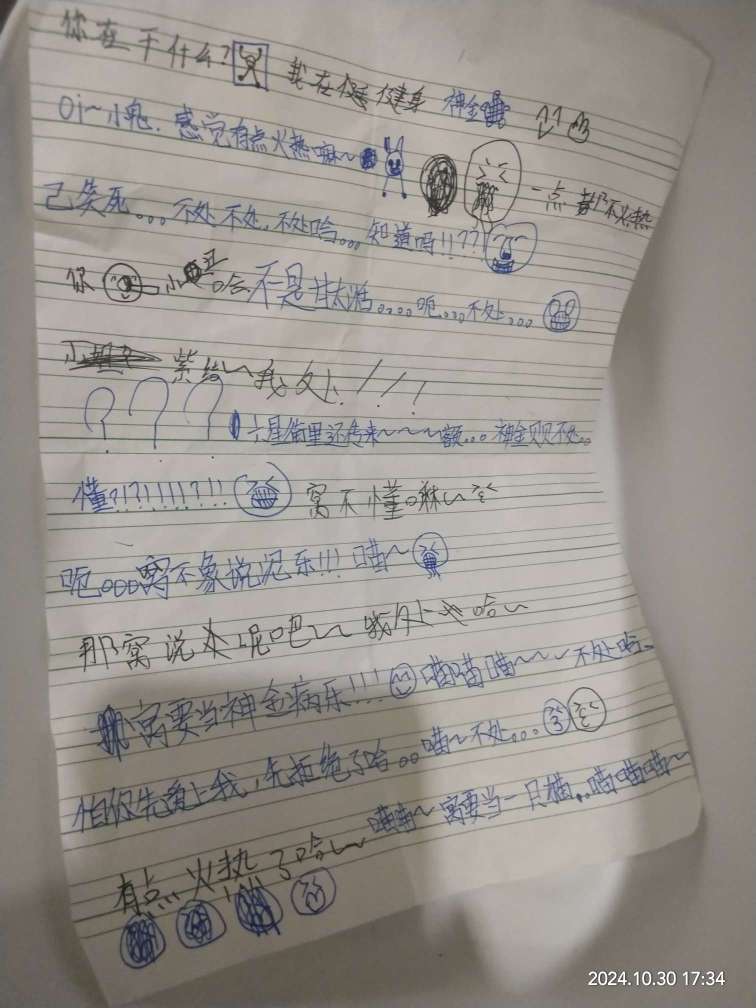 你在干什么? 我在健身 神金
Oi~小鬼. 感觉有点火热嘛~
一点都不火热
己笑死。。。不处不处,不处哈。。。知道吗!!??
你 小 哈 不是 。。。。呃。。。不处。。。
紫给~我处!!!
? ? ? 六星街里还传来~~~额。。。神金 不处。。
懂?!?!!!!?!! 窝不懂嘛~
呃。。。窝不象说泥乐!!! 喵~
那窝说 呢吧~ 我处 哈~
窝要当神金病乐!!! 喵喵喵~~~不处哈~
怕你先看上我,先拒绝了哈。。喵~不处。。。
有点火热了哈~ 喵喵~窝要当一只猫..喵喵喵~
2024.10.30 17:34